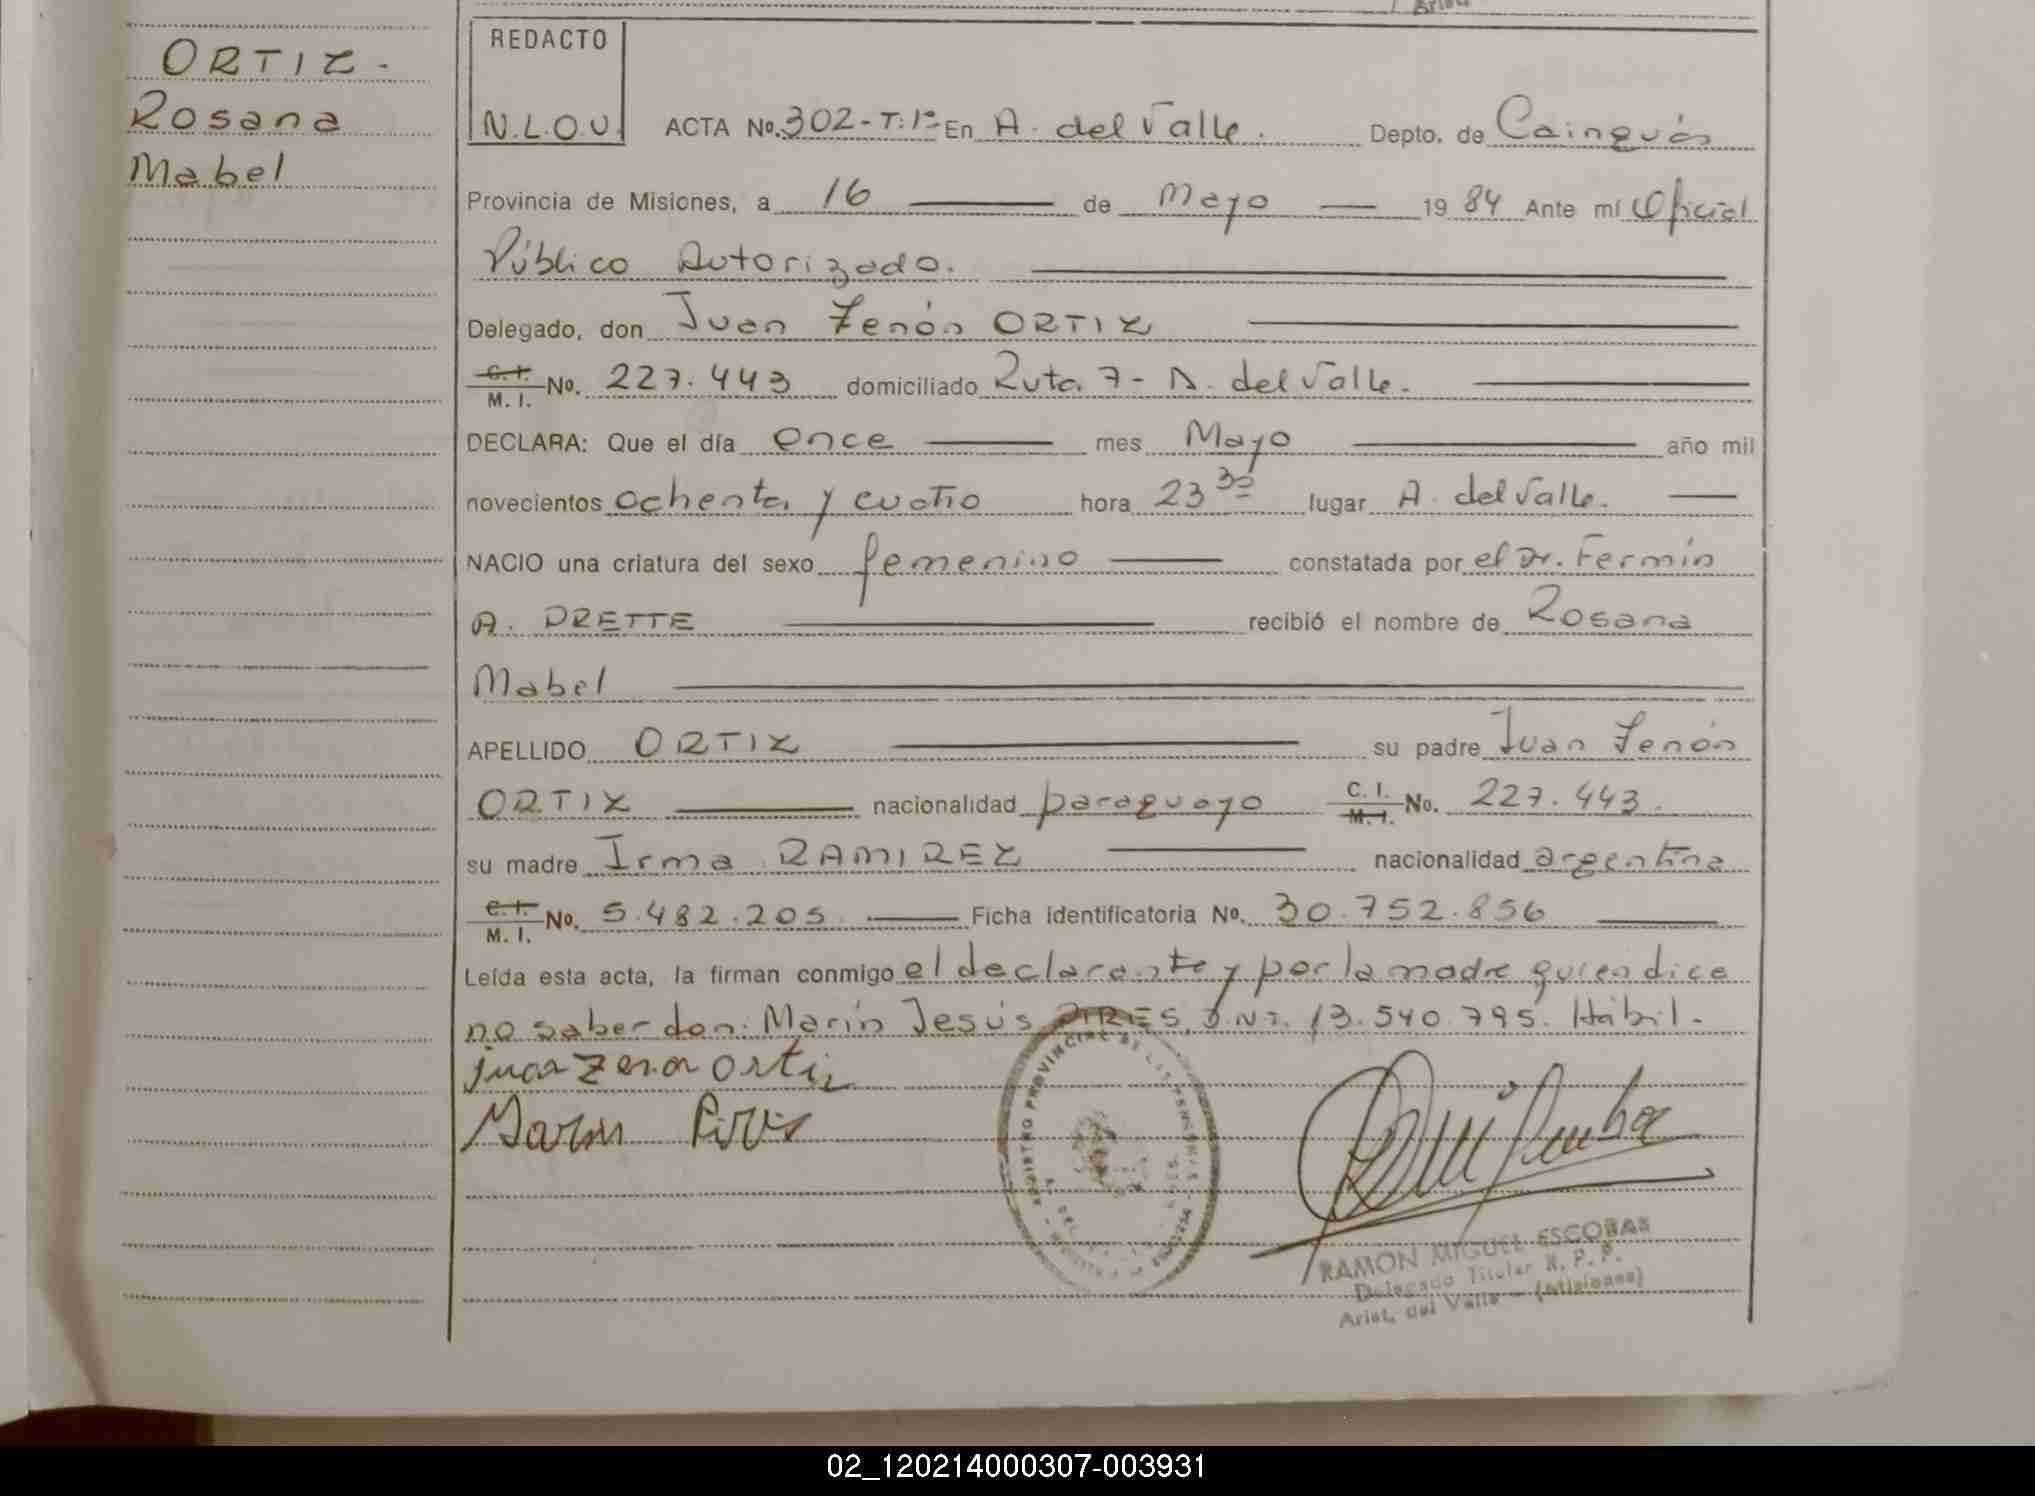 ORTIZ.
Rosana
Mabel
REDACTO
N.L.O.U.
ACTA No. 302 - T: 1º En A. del Valle. Depto. de Cainguás
Provincia de Misiones, a 16 de Mayo 1984 Ante mí Oficial
Público Autorizado.
Delegado, don Juan Zenón ORTIZ
C. I. M. I. No. 227.443 domiciliado Ruta 7 - A. del Valle.
DECLARA: Que el día Once mes Mayo año mil
novecientos ochenta y cuatro hora 23 30 lugar A. del Valle.
NACIO una criatura del sexo femenino constatada por el Dr. Fermín
A. DRETTE recibió el nombre de Rosana
Mabel
APELLIDO ORTIZ su padre Juan Zenón
ORTIZ nacionalidad paraguayo C. I. M. I. No. 227.443.
su madre Irma RAMIREZ nacionalidad argentina
C. I. M. I. No. 5.482.205. Ficha identificatoria No. 30.752.856
Leída esta acta, la firman conmigo el declarante y por la madre quien dice
no saber don: Marín Jesús PIRES, D.N.I. 13.540.795. Hábil.
juan Zenon ortiz
Marin Pires
REGISTRO PROVINCIAL DE LAS PERSONAS
RAMON MIGUEL ESCOBAR
Delegado Titular R. P. P.
Arist. del Valle - (Misiones)
02_120214000307-003931